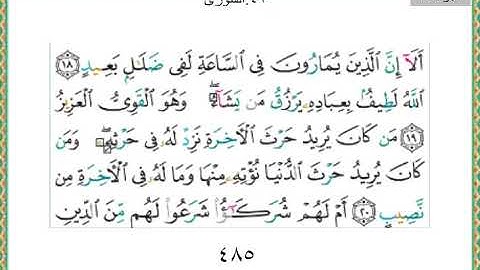 ٤٢.الشورى
أَلَآ إِنَّ ٱلَّذِينَ يُمَارُونَ فِى ٱلسَّاعَةِ لَفِى ضَلَٰلٍۭ بَعِيدٍ ١٨
ٱللَّهُ لَطِيفٌۢ بِعِبَادِهِۦ يَرْزُقُ مَن يَشَآءُ ۖ وَهُوَ ٱلْقَوِىُّ ٱلْعَزِيزُ
١٩ مَن كَانَ يُرِيدُ حَرْثَ ٱلْءَاخِرَةِ نَزِدْ لَهُۥ فِى حَرْثِهِۦ ۖ وَمَن
كَانَ يُرِيدُ حَرْثَ ٱلدُّنْيَا نُؤْتِهِۦ مِنْهَا وَمَا لَهُۥ فِى ٱلْءَاخِرَةِ مِن
نَّصِيبٍ ٢٠ أَمْ لَهُمْ شُرَكَٰٓؤُا۟ شَرَعُوا۟ لَهُم مِّنَ ٱلدِّينِ
٤٨٥